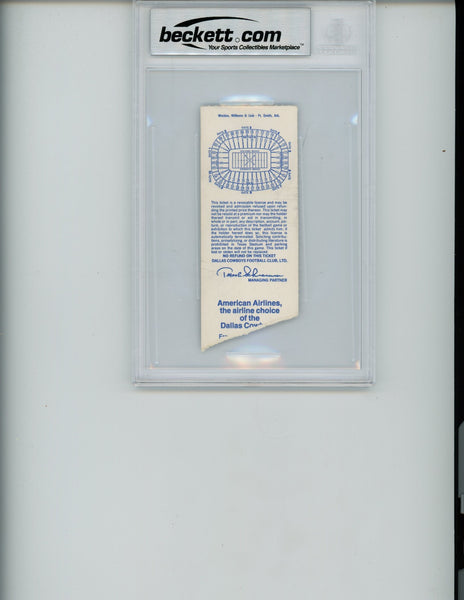 beckett.com™
Your Sports Collectibles Marketplace™
Weldon, Williams & Lick - Ft. Smith, Ark.
This ticket is a revocable license and may be
revoked and admission refused upon refun-
ding the printed price thereon. This ticket may
not be resold at a premium nor may the holder
thereof transmit or aid in transmitting, in
whole or in part, any description, account, pic-
ture, or reproduction of the football game or
exhibition to which this ticket admits him; if
the holder hereof does so, this license is
automatically terminated. Soliciting contribu-
tions, proselytizing, or distributing literature is
prohibited in Texas Stadium and parking
areas on the date of this game. This ticket if
lost or stolen will not be replaced.
NO REFUND ON THIS TICKET
DALLAS COWBOYS FOOTBALL CLUB, LTD.
MANAGING PARTNER
American Airlines,
the airline choice
of the
Dallas